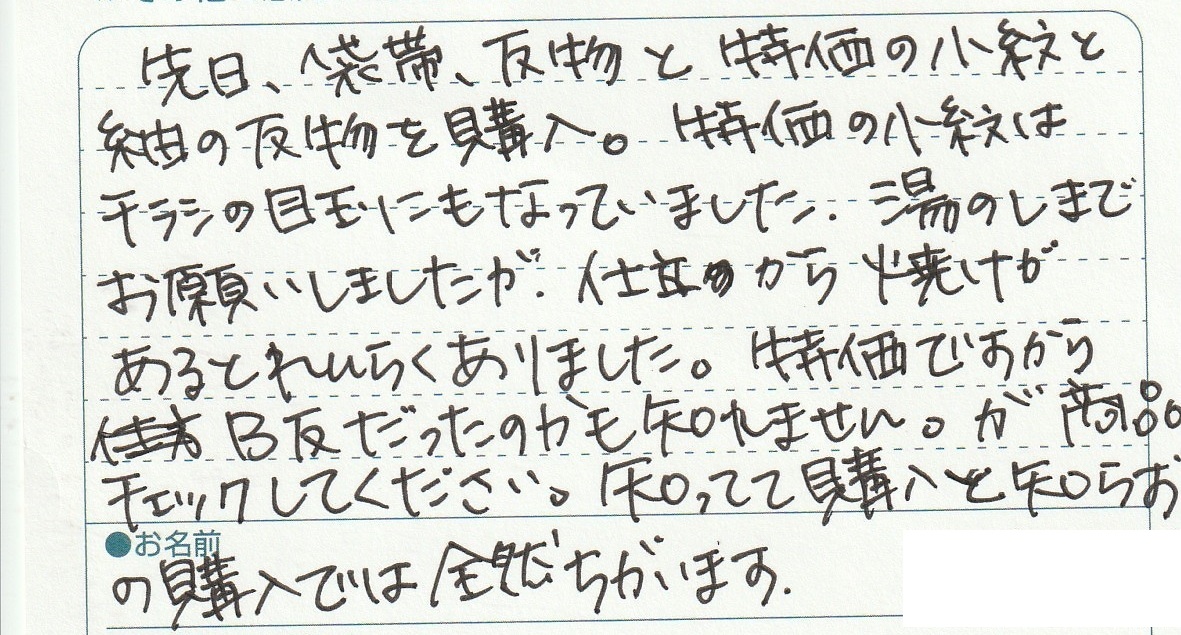 先日、袋帯、反物と特価の小紋と
紬の反物を購入。特価の小紋は
チラシの目玉にもなっていました. 湯のしまで
お願いしましたが. 仕立 から 焼けが
あるとれんらくありました。特価ですから
B反だったのかも知れません。が 商品
チェックしてください。知ってて購入と知らお
●お名前
の購入では全然ちがいます.